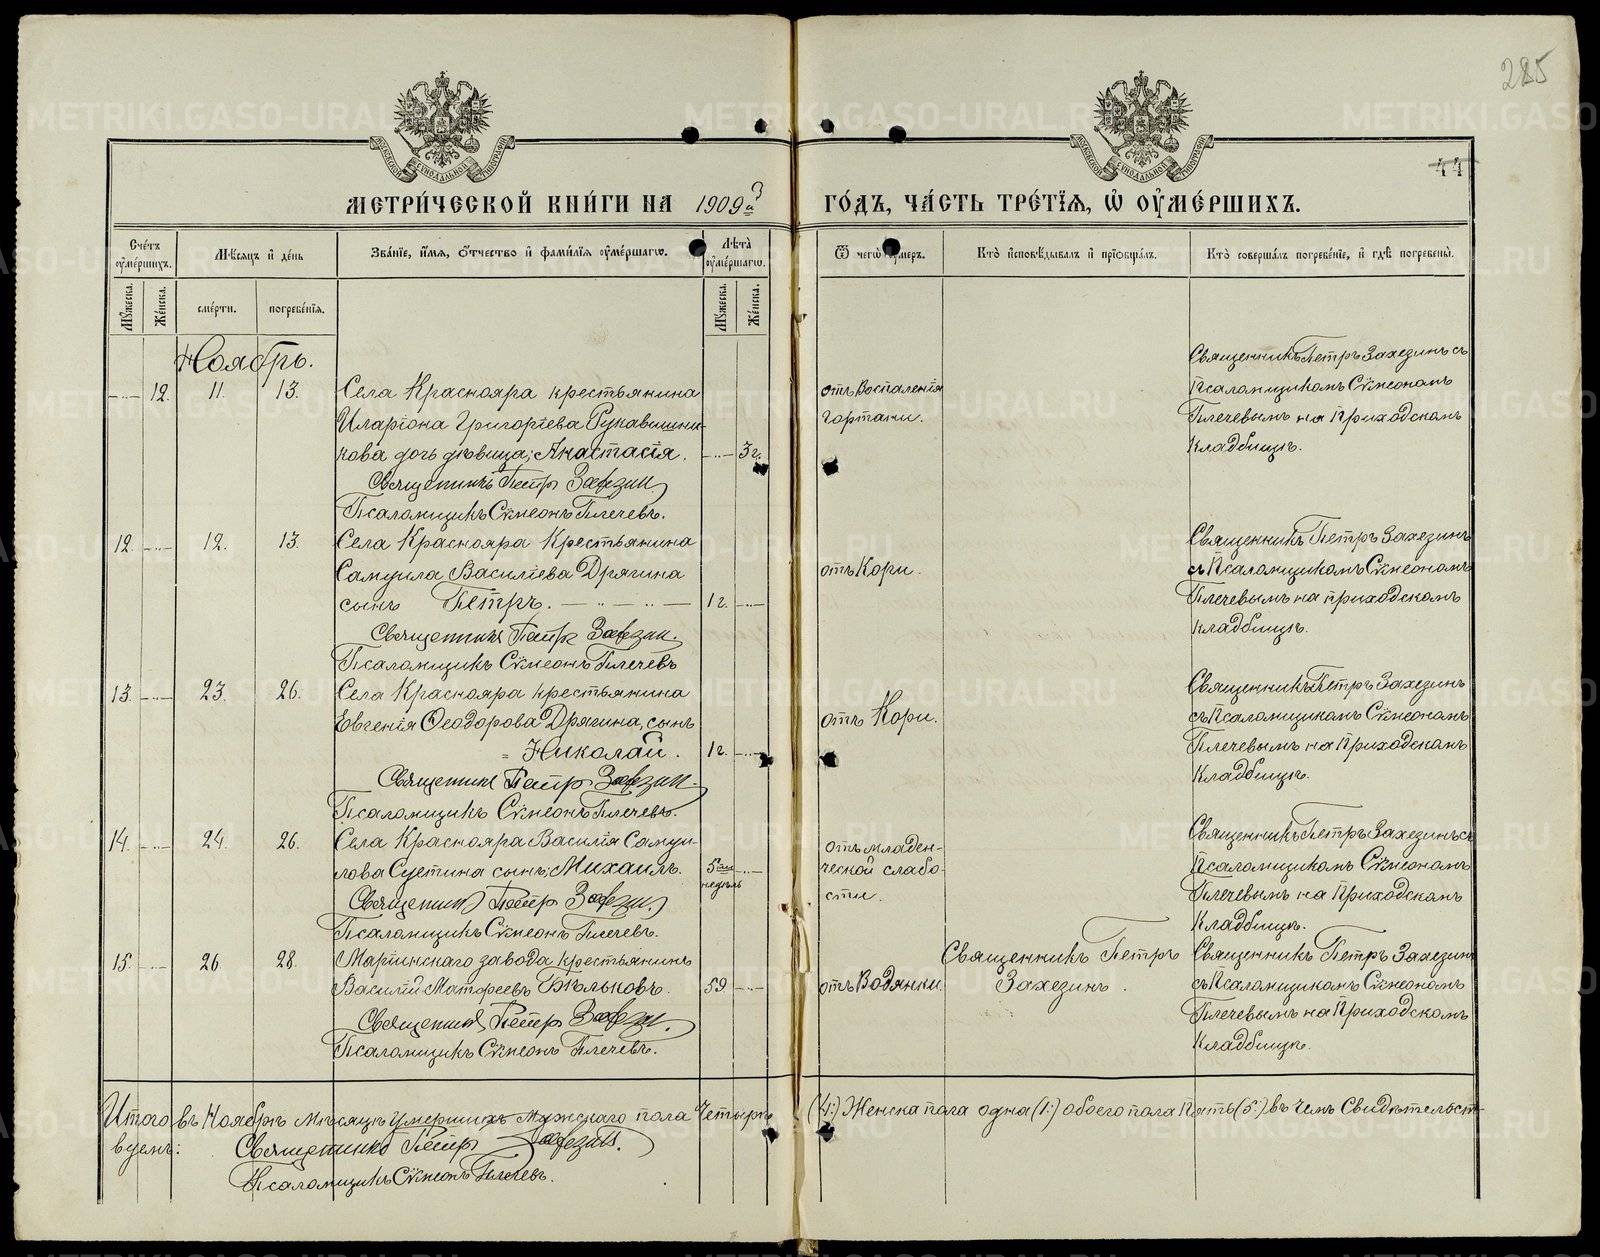 285
44
МЕТРИ́ЧЕСКОЙ КНИ́ГИ НА 1909 й
ГО́ДЪ, ЧА́СТЬ ТРЕ́ТЇѦ, Ѡ҆ ОУ҆МЕ́РШИХЪ.
Сче́тъ оу҆ме́ршихъ.
Мѣ́сѧцъ и҆ де́нь
Зва́нїе, и҆́мѧ, ѻ҆́тчество и҆ фами́лїѧ оу҆ме́ршагѡ.
Лѣ́та оу҆ме́ршагѡ.
Ѿ чегѡ̀ оу҆́меръ.
Кто̀ и҆сповѣ́дывалъ и҆ прїѡбща́лъ.
Кто̀ соверша́лъ погребе́нїе, и҆ гдѣ̀ погребены̀.
Мꙋ́жеска.
Же́нска.
сме́рти.
погребе́нїѧ.
Мꙋ́жеска.
Же́нска.
Ноябрь.
12. 11. 13. Села Краснояра крестьянина
Иларіона Григоріева Рукавишни-
кова дочь дѣвица, Анастасія. 3 г.
Священникъ Петръ Захезин
Псаломщикъ Сѵмеонъ Плечевъ.
отъ Воспаленія
гортани.
Священникъ Петръ Захезинъ съ
Псаломщикомъ Сѵмеономъ
Плечевымъ на Приходскомъ
Кладбищѣ.
12. 12. 13. Села Краснояра Крестьянина
Самуила Василіева Дрягина
сынъ Петръ. 1 г.
Священник Петр Захезин.
Псаломщикъ Сѵмеонъ Плечевъ
отъ Кори.
Священникъ Петръ Захезинъ
съ Псаломщикомъ Сѵмеономъ
Плечевымъ на приходскомъ
кладбищѣ.
13. 23. 26. Села Краснояра крестьянина
Евгенія Ѳеодорова Дрягина, сынъ
Николай. 1 г.
Священник Петр Захезин.
Псаломщикъ Сѵмеонъ Плечевъ.
отъ Кори.
Священникъ Петръ Захезинъ
съ Псаломщикомъ Сѵмеономъ
Плечевымъ на Приходскомъ
Кладбищѣ.
14. 24. 26. Села Краснояра Василія Самуи-
лова Суетина сынъ, Михаилъ. 5 ти недѣль
Священник Петр Захезин.
Псаломщикъ Сѵмеонъ Плечевъ.
отъ младен-
ческой слабо-
сти.
Священникъ Петръ Захезинъ съ
Псаломщикомъ Сѵмеономъ
Плечевымъ на Приходскомъ
Кладбищѣ.
15. 26. 28. Маріинскаго завода крестьянинъ
Василій Матѳеевъ Бѣльковъ. 59.
Священник Петр Захезин.
Псаломщикъ Сѵмеонъ Плечевъ.
отъ Водянки.
Священникъ Петръ
Захезинъ.
Священникъ Петръ Захезинъ
съ Псаломщикомъ Сѵмеономъ
Плечевымъ на Приходскомъ
Кладбищѣ.
Итого въ Ноябрѣ Мѣсяцѣ Умершихъ Мужскаго пола Четыре (4:) Женска пола одна (1:) обоего пола Пять (5:) въ чемъ Свидѣтельст-
вуемъ:
Священникъ Петръ Захезинъ.
Псаломщикъ Сѵмеонъ Плечевъ.
METRIKI.GASO-URAL.RU